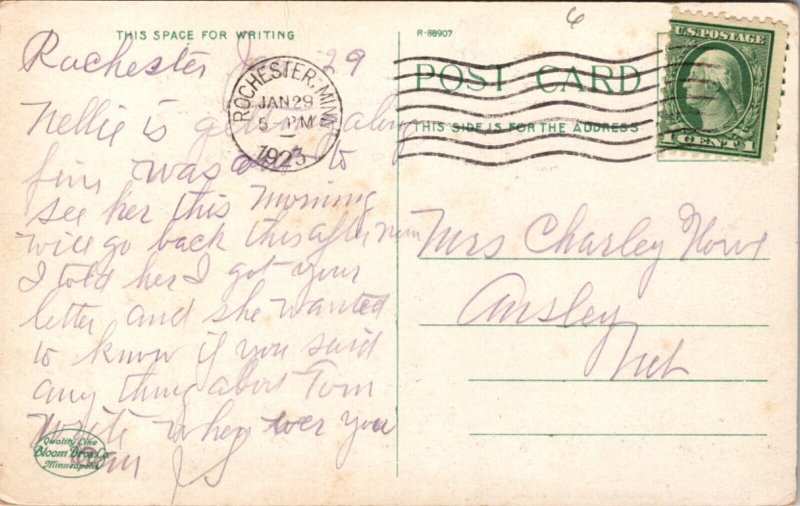 THIS SPACE FOR WRITING
R-88907
6
U.S. POSTAGE
1 CENT 1
POST CARD
THIS SIDE IS FOR THE ADDRESS
ROCHESTER, MINN.
JAN 29
5 - PM
1923
Rochester Jan 29
Nellie is along
fine was to
see her this morning
will go back this afternoon
I told her I got your
letter and she wanted
to know if you said
any thing about Tom
Write when ever you
can JS
Mrs Charley
Ansley
Neb
Quality Line
Bloom Bros. Co.
Minneapolis